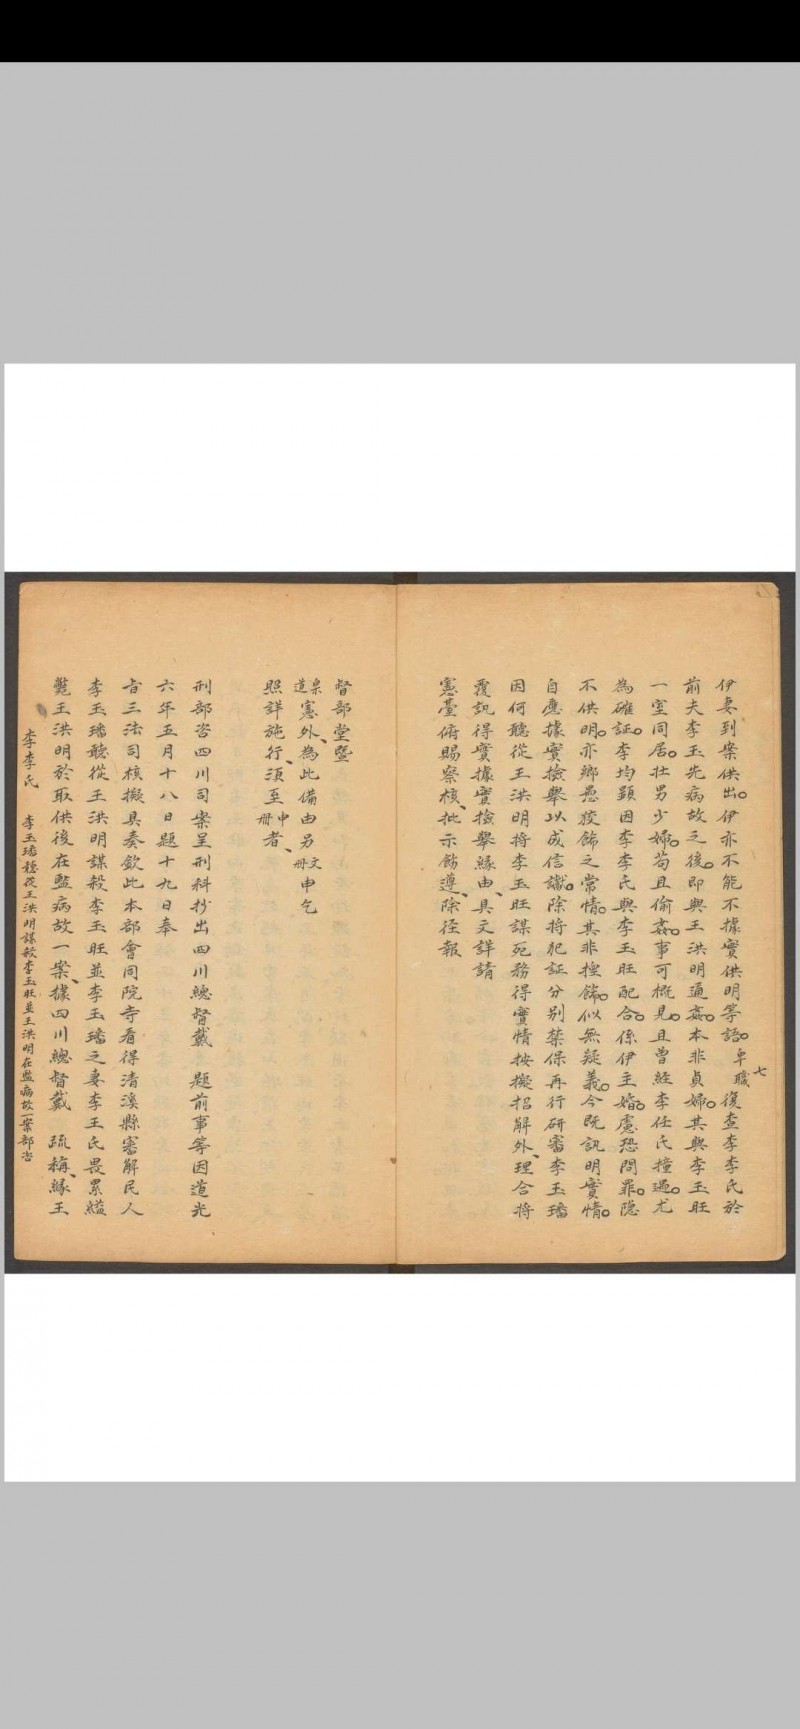 七
伊妻到案供出。伊亦不能不據實供明等語。卑職復查李李氏於
前夫李玉先病故之後。即與王洪明通姦。本非貞婦。其與李玉旺
一室同居。壯男少婦。苟且偷姦。事可概見。且曾經李任氏撞過。尤
為確証。李均顕因李李氏與李玉旺配合。係伊主婚。慮恐問罪。隐
不供明。亦鄉愚狡飾之常情。其非捏飾。似無疑義。今既訊明實情。
自應據實撿舉以成信讞。除将犯証分别禁保再行研審李玉璠
因何聽從王洪明将李玉旺謀死務得實情按擬招解外、理合将
覆訊得實據實撿舉縁由、具文詳請
憲臺俯賜察核、批示飭遵、除徑報
督部堂暨
臬道憲外、為此備由另文冊申乞
照詳施行、須至申冊者、
刑部咨四川司案呈刑科抄出四川總督戴 題前事等因道光
六年五月十八日題十九日奉
㫖三法司核擬具奏欽此本部會同院寺看得清溪縣審解民人
李玉璠聽從王洪明謀殺李玉旺並李玉璠之妻李王氏畏累縊
斃王洪明於取供後在監病故一案、據四川總督戴 疏稱、縁王
李李氏 李玉璠聴从王洪明謀殺李玉旺並王洪明在監病故一案部咨